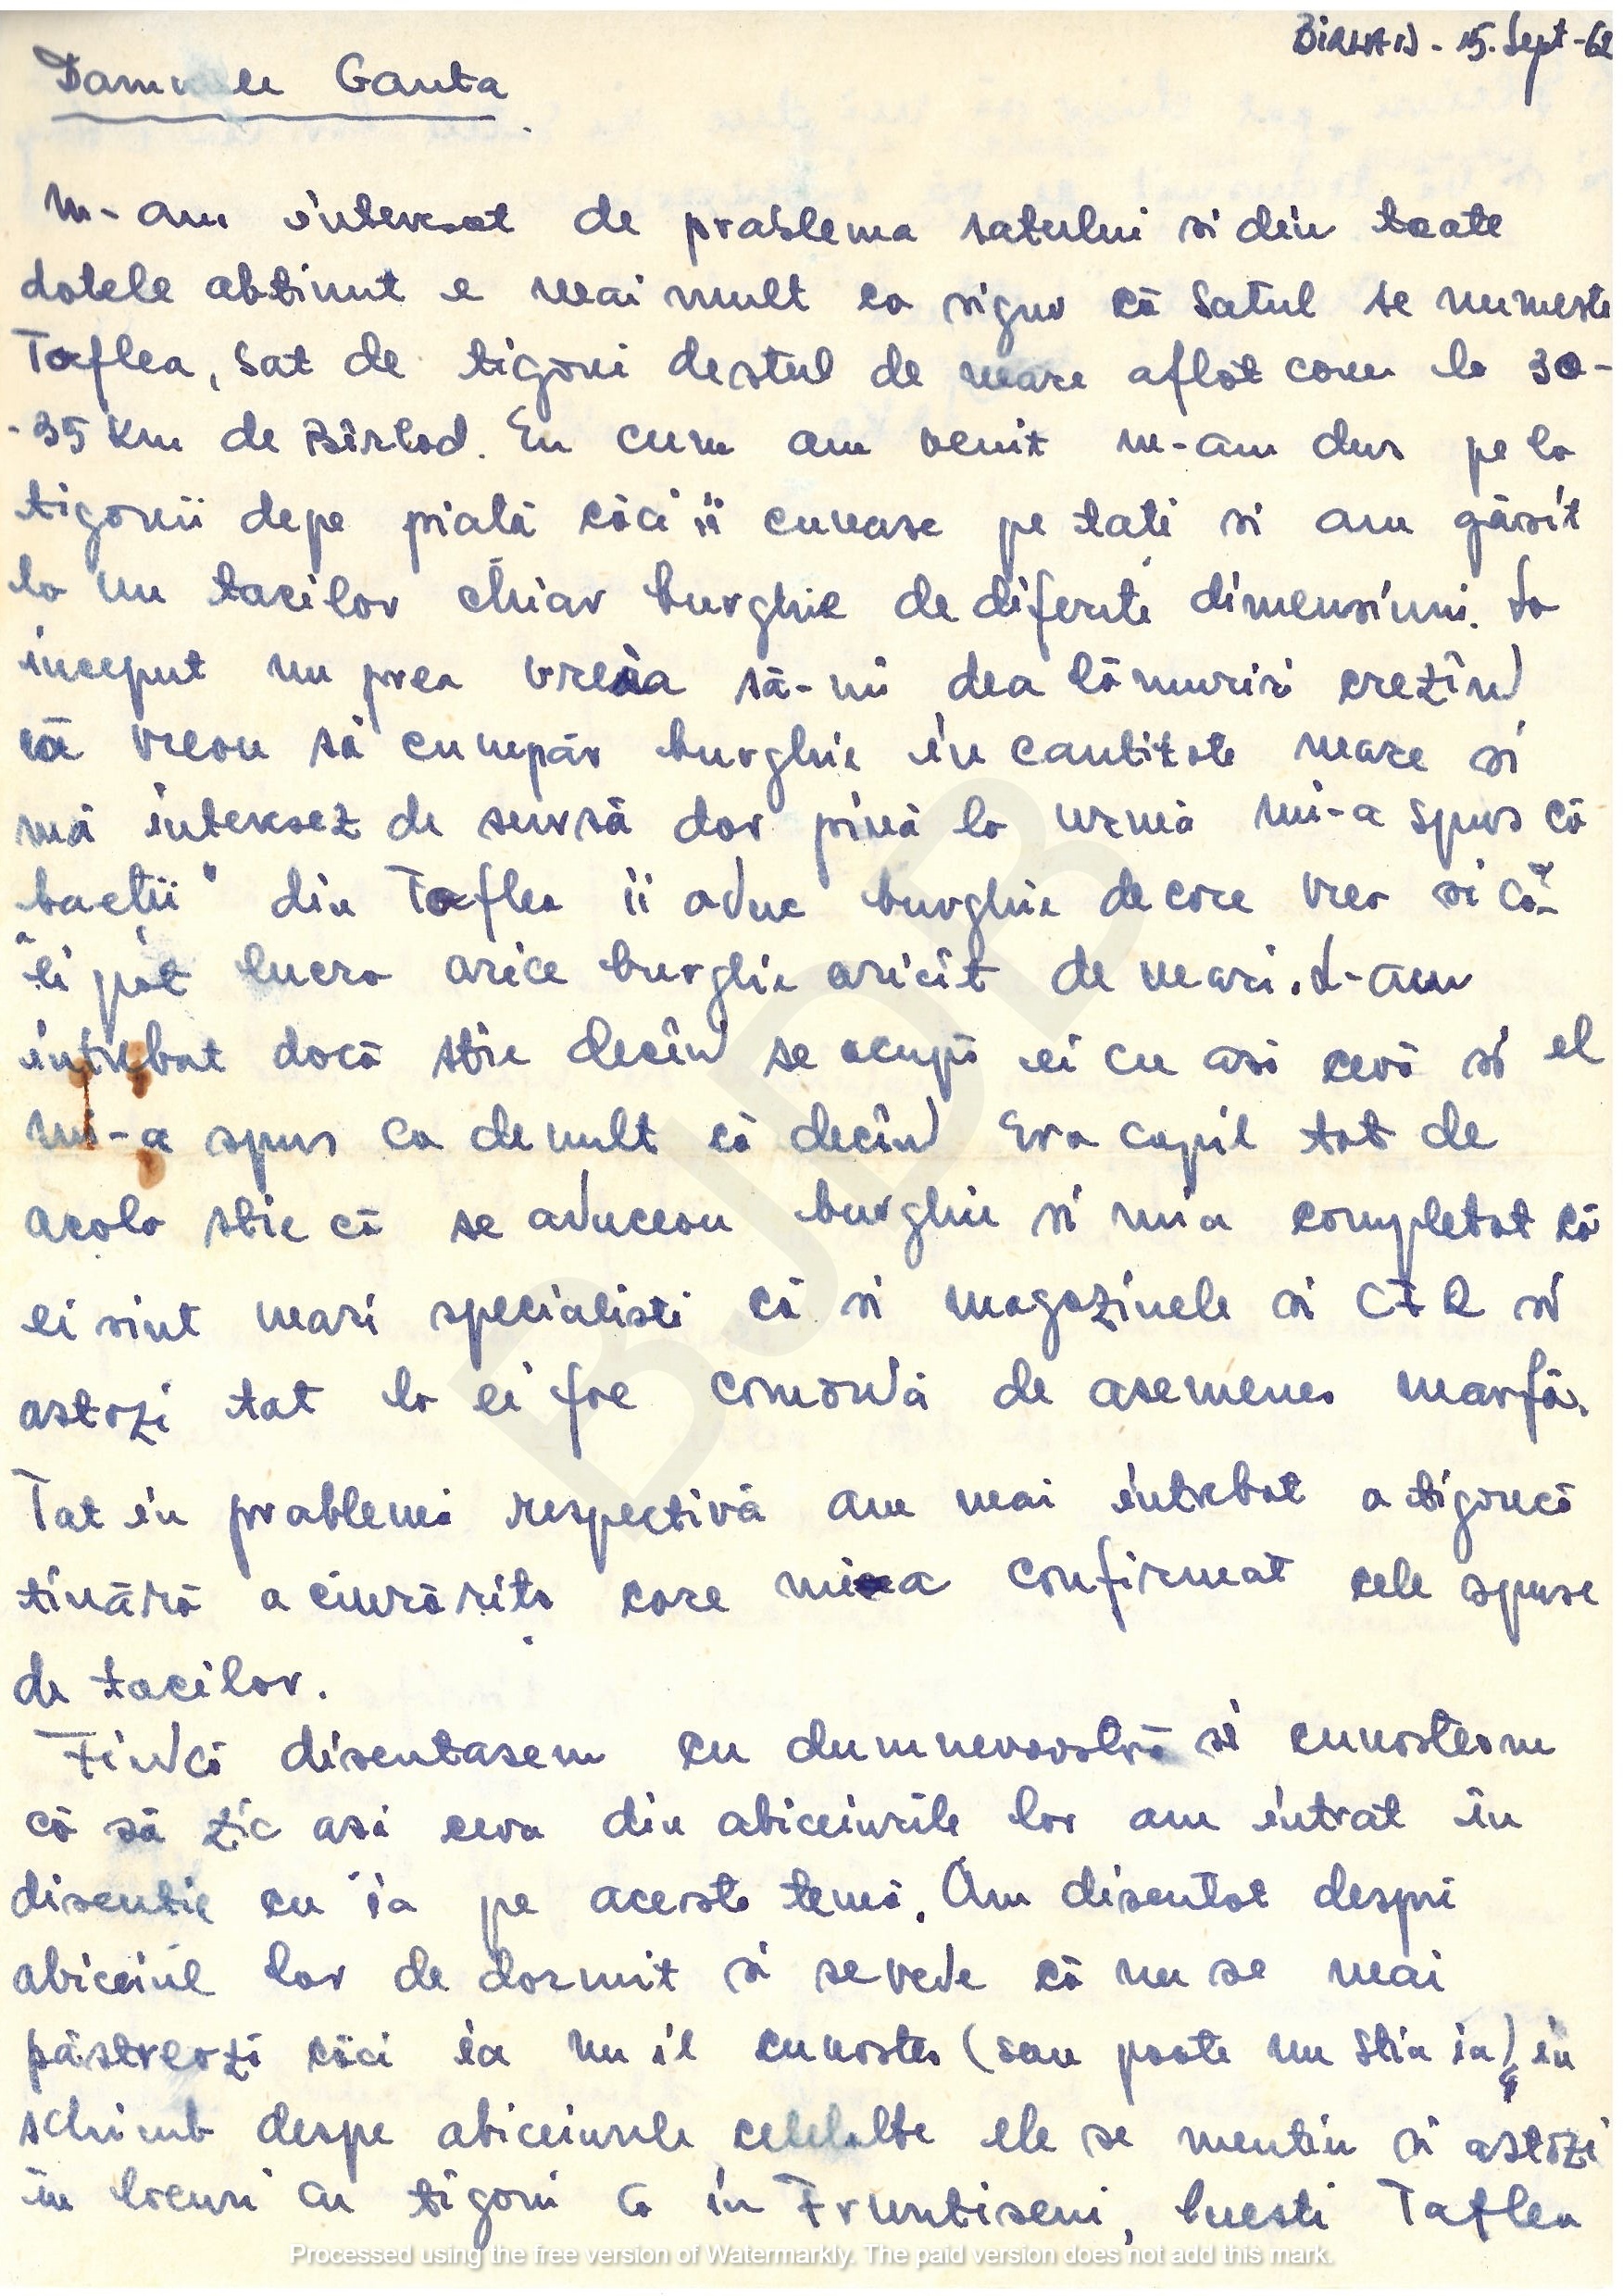 BIRLAD - 15. Sept - 62
Domnule Ganta
M-am interesat de problema satului si din toate
datele obtinut e mai mult ca sigur că satul se numeste
Toflea, sat de tigani destul de mare aflat cam la 30-
-35 Km de Bîrlad. Eu cum am venit m-am dus pe la
tiganii depe piată căci îi cunosc pe toti si am găsit
la un tocilar chiar burghie de diferite dimensiuni. La
inceput nu prea vrea să-mi dea lămuriri crezînd
că vreau să cumpăr burghie în cantitate mare si
mă interesez de sursă dar pînă la urmă mi-a spus că
baetii" din Toflea ii aduc burghie de care vrea si că-
"ti pot lucra orice burghie oricît de mari. L-am
intrebat dacă stie decînd se ocupă ei cu asa ceva si el
mi-a spus ca demult că decînd era copil tot de
acolo stie că se aduceau burghie si mi a completat că
ei sint mari specialisti că si magazinele si CFR si
astazi tot la ei fac comandă de asemenea marfă.
Tot in problema respectivă am mai intrebat o tigancă
tinără o ciurărită care mi a confirmat cele spuse
de tocilar.
Findcă discutasem cu dumneavoastră si cunosteam
că să zic asa ceva din obiceiurile lor am intrat în
discutie cu ia pe aceasta temă. Am discutat despre
obiceiul lor de dormit si se vede că nu se mai
păstrează căci ia nu il cunoste (sau poate nu stia ia) in
schimb despe obiceiurile celelalte ele se mentin si astăzi
în locuri cu tigani ca in Fruntiseni, Guesti Toflea
BJDB
Processed using the free version of Watermarkly. The paid version does not add this mark.